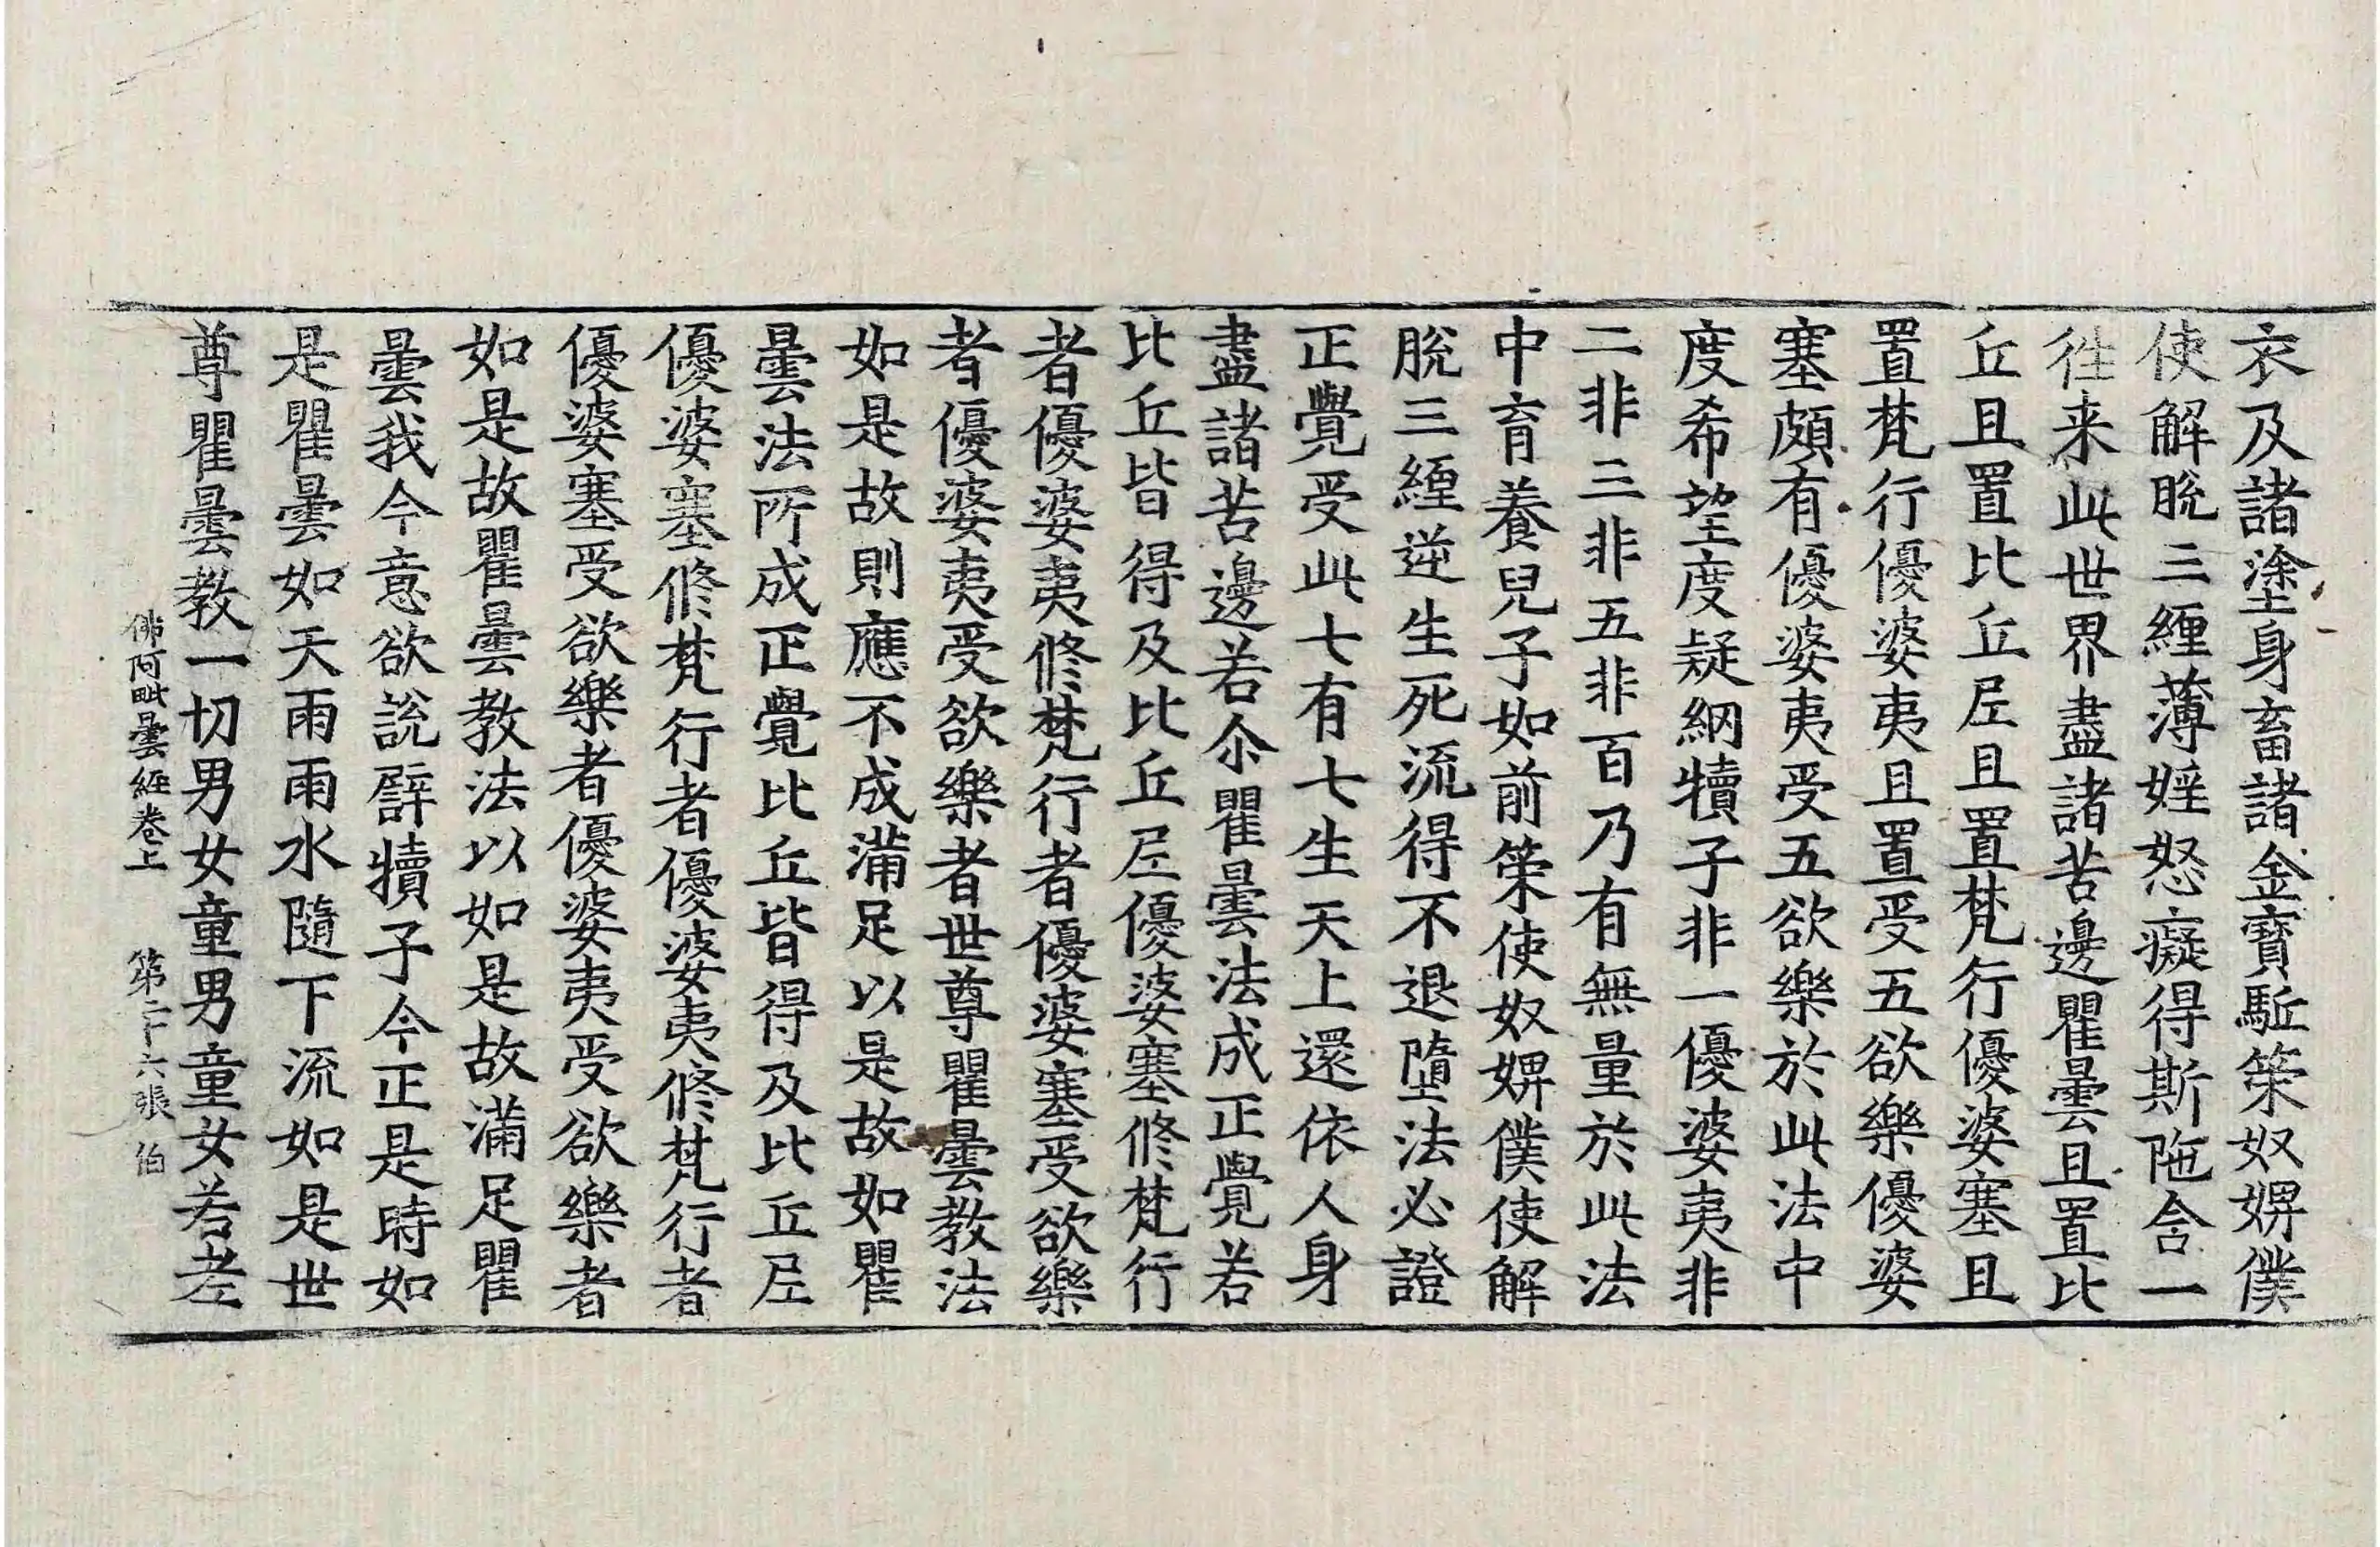 衣及諸塗身畜諸金寶駈策奴婢僕
使解脫三纏薄婬怒癡得斯陁含一
徃来此世界盡諸苦邊瞿曇且置比
丘且置比丘尼且置梵行優婆塞且
置梵行優婆夷且置受五欲樂優婆
塞頗有優婆夷受五欲樂於此法中
度希望度疑網犢子非一優婆夷非
二非三非五非百乃有無量於此法
中育養兒子如前策使奴婢僕使解
脫三纏逆生死流得不退墮法必證
正覺受此七有七生天上還依人身
盡諸苦邊若尒瞿曇法成正覺若
比丘皆得及比丘尼優婆塞修梵行
者優婆夷修梵行者優婆塞受欲樂
者優婆夷受欲樂者世尊瞿曇教法
如是故則應不成滿足以是故如瞿
曇法所成正覺比丘皆得及比丘尼
優婆塞修梵行者優婆夷修梵行者
優婆塞受欲樂者優婆夷受欲樂者
如是故瞿曇教法以如是故滿足瞿
曇我今意欲說譬犢子今正是時如
是瞿曇如天雨雨水隨下流如是世
尊瞿曇教一切男女童男童女若老
佛阿毗曇經卷上 第二十六張 伯